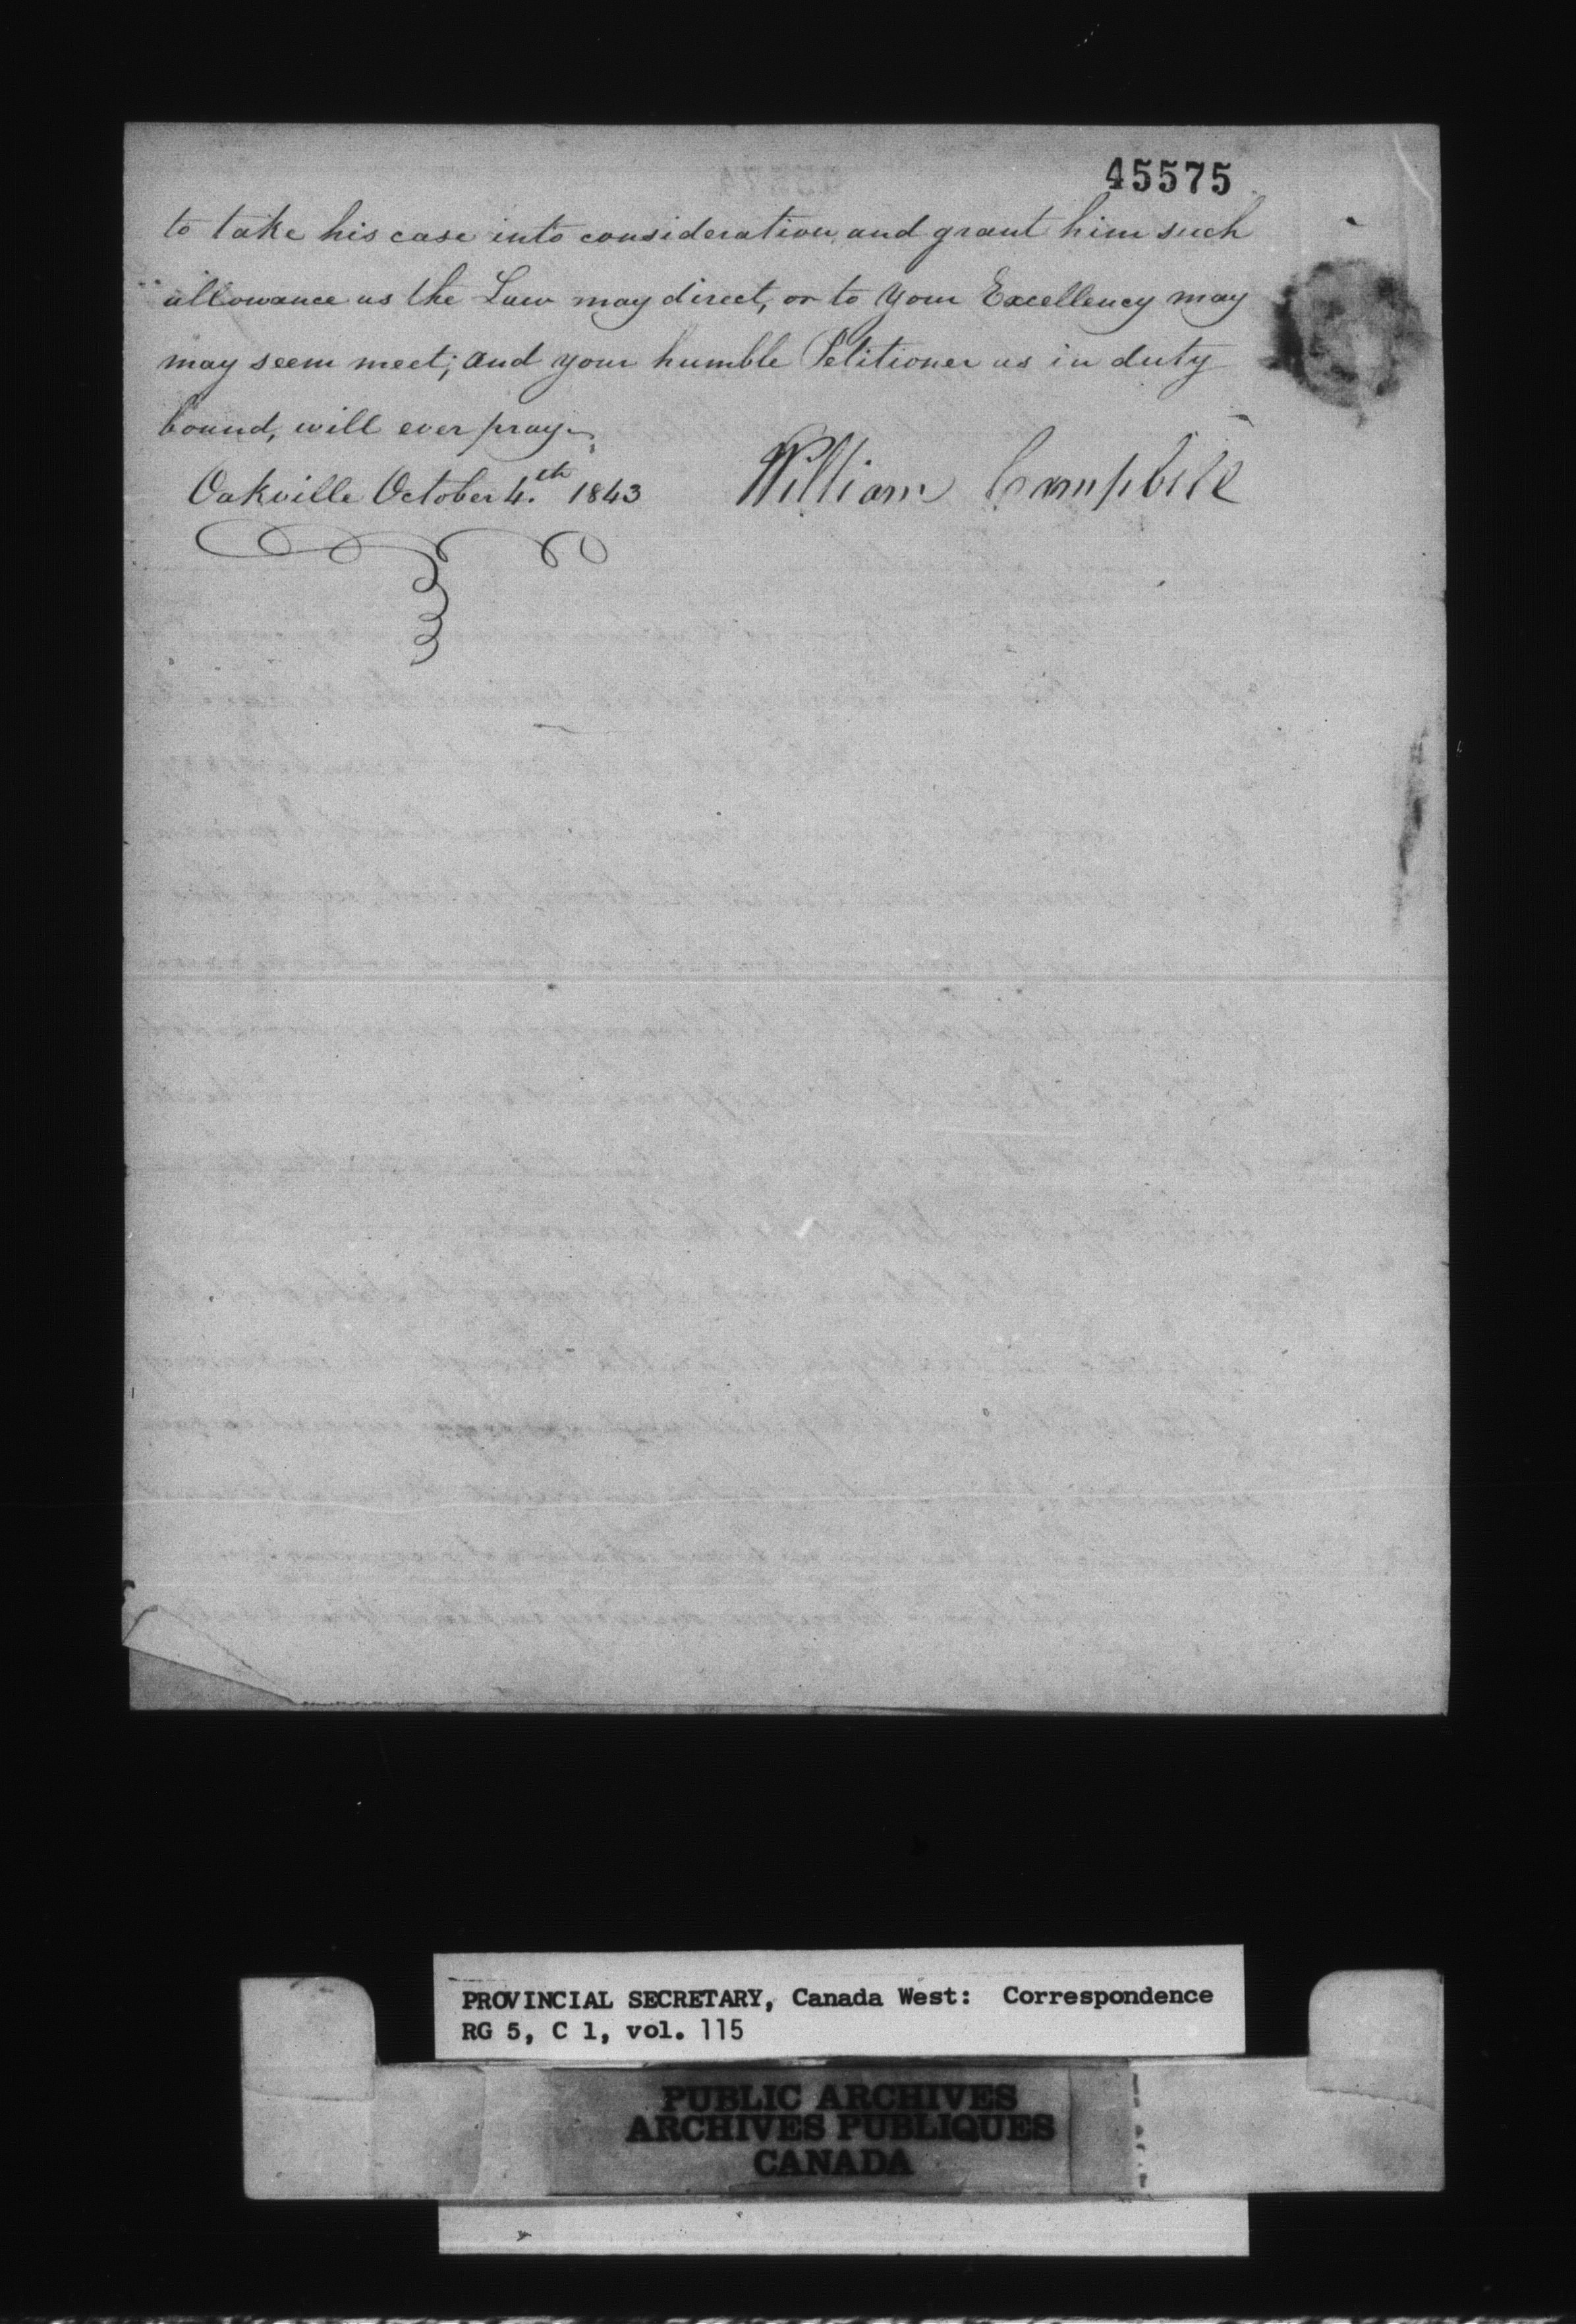 45575
to take his case into consideration, and grant him such
allowance as the Law may direct, or to Your Excellency may
may seem meet; and your humble Petitioner as in duty
bound, will ever pray.
Oakville October 4.th 1843 William Campbell
PROVINCIAL SECRETARY, Canada West: Correspondence
RG 5, C 1, vol. 115
PUBLIC ARCHIVES
ARCHIVES PUBLIQUES
CANADA